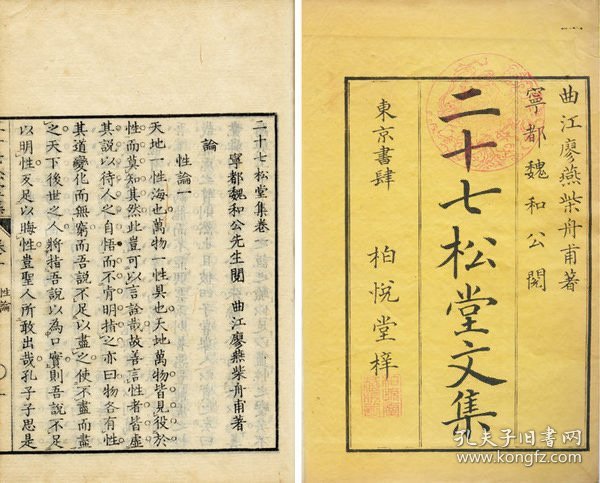 曲江廖燕柴舟甫著
寧都魏和公閱
二十七松堂文集
東京書肆 柏悅堂梓
二十七松堂集卷一
寧都魏和公先生閱 曲江廖燕柴舟甫著
論
性論一
天地一性海也萬物一性具也天地萬物皆見役於
性而莫知其然此豈可以言詮哉故善言性者皆虛
其說以待人之自悟而不肯明指之亦曰物各有性
其道變化而無窮而吾說不足以盡之使不盡而盡
之天下後世之人將指吾說以為口實則吾說不足
以明性反足以晦性豈聖人所敢出哉孔子子思是
性論
孔夫子旧书网
www.kongfz.com